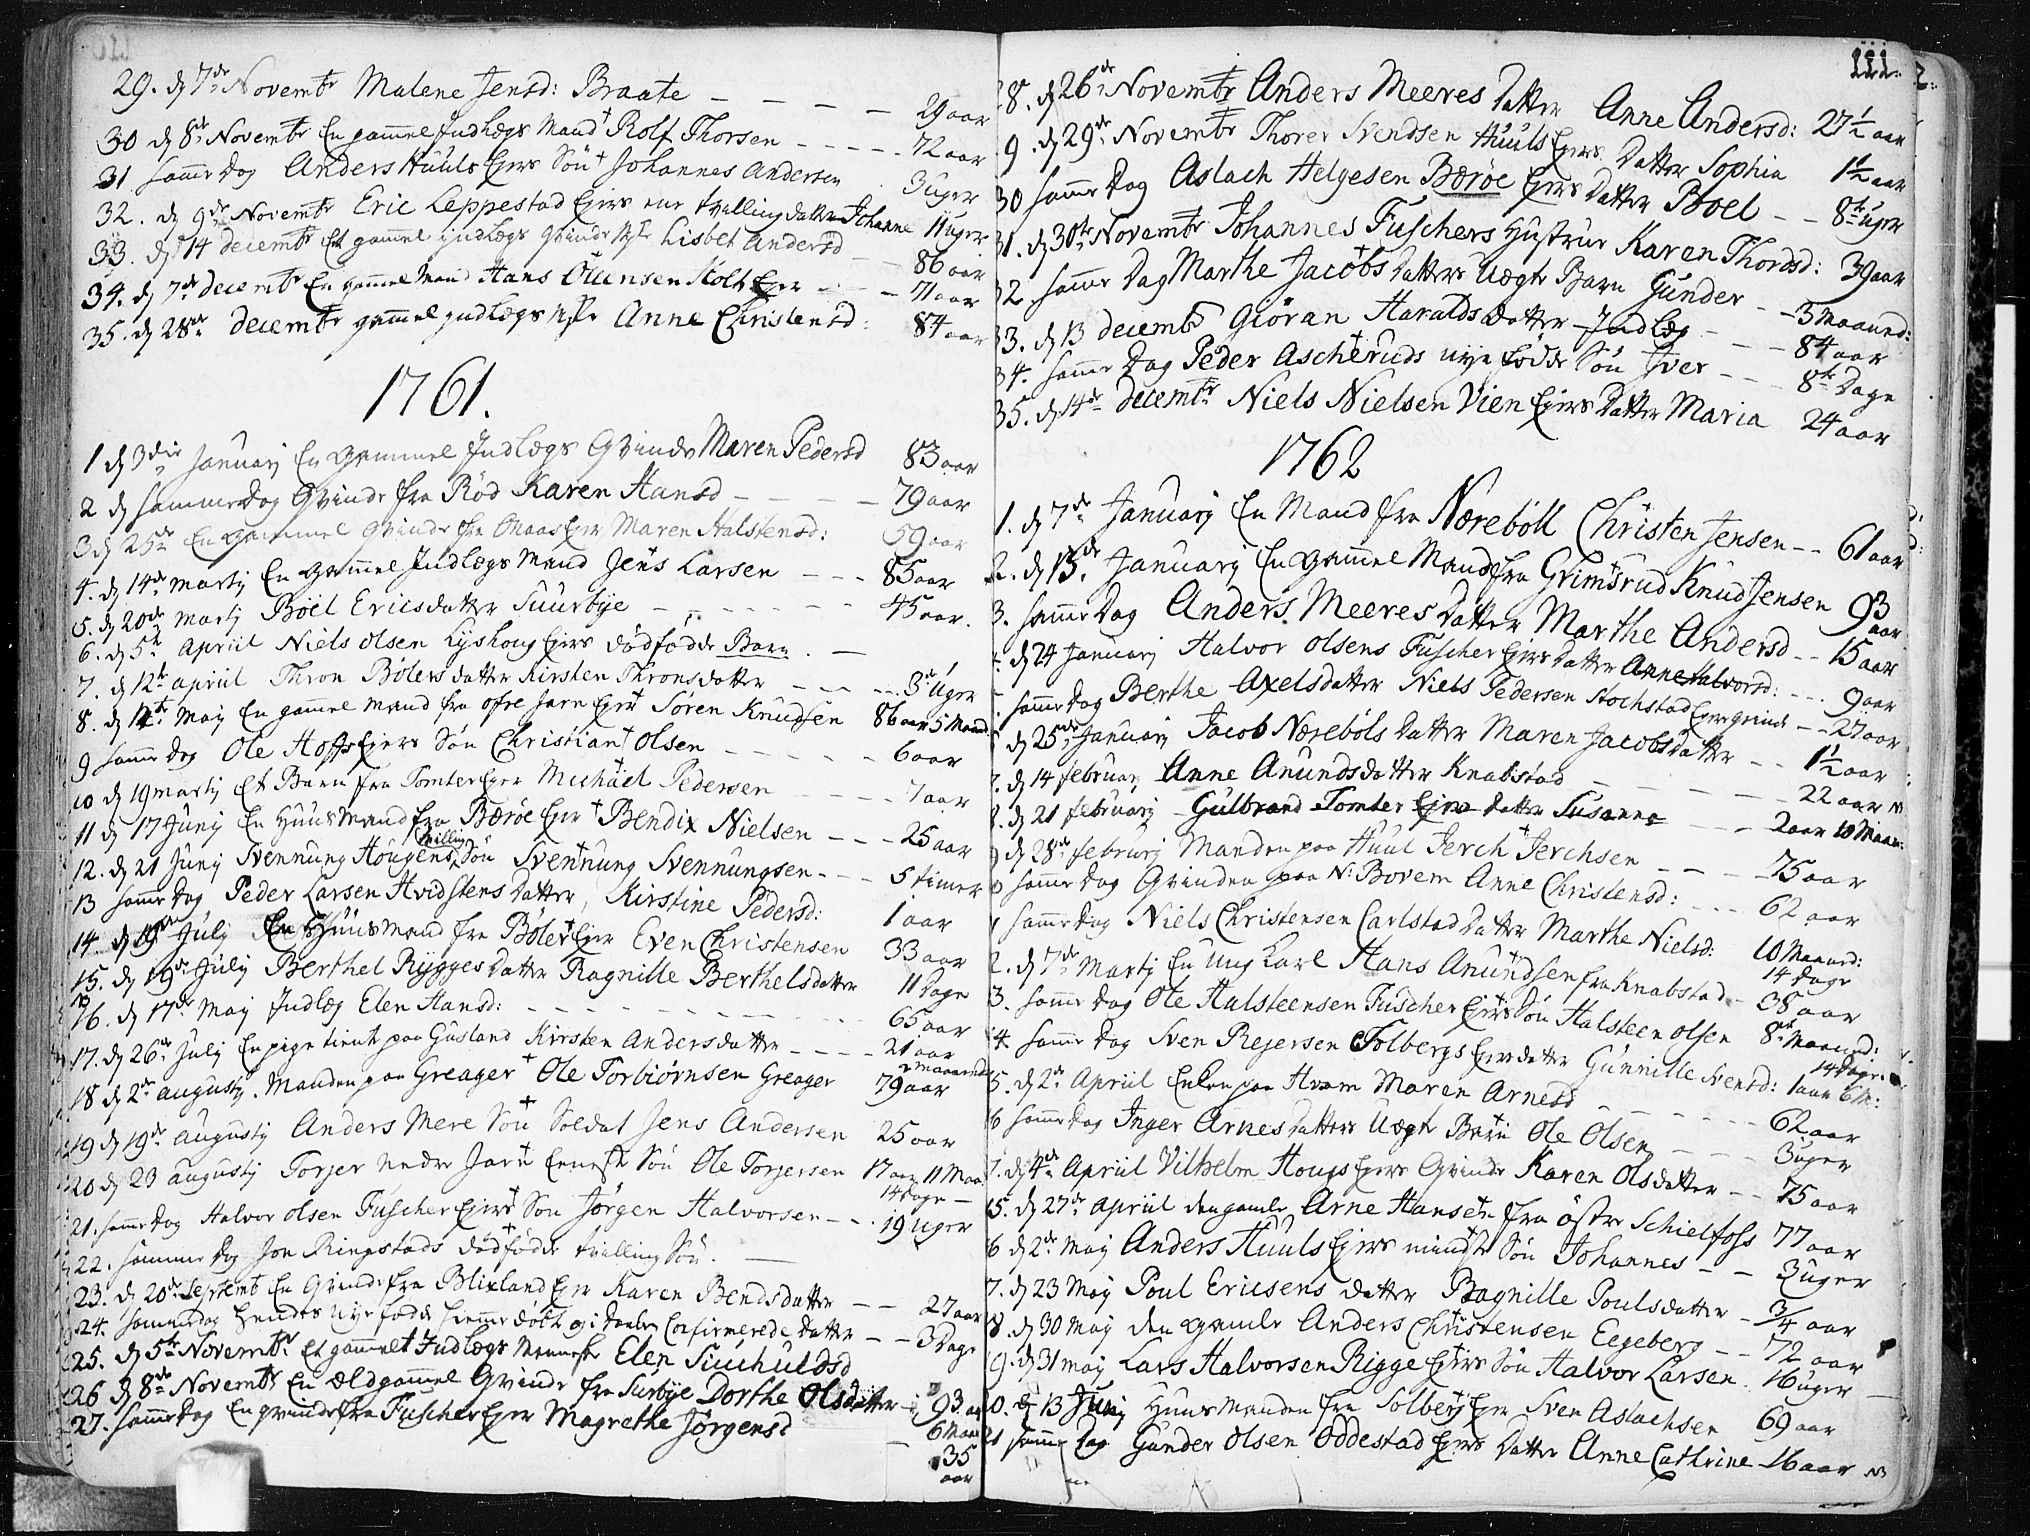 29. d 7de Novembr Malene Jensd: Braate — — — — 29 aar
30 d 8de Novembr En gammel Indlægs Mand Rolf Thorsen - - - - - 72 aar
31 samme Dag Anders Huuls Ejers Søn Johannes Andersen 3 uger
32. d 9de Novembr Eric Leppestad Ejers ene tvilling datter Johanne 11 uger
33. d 14 decembr Et gammel indlægs Qvinde Lisbet Andersd 86 aar
34. d 7de decembr En gammel Mand Hans Ouensen Holt Ejer - - 71 aar
35. d 28de decembr gammel indlægs Anne Christensd: 84 aar
1761.
1 d 3die Januarj En Gammel Indlægs Qvinde Maren Pedersd 83 aar
2 d samme dag Qvinde fra Rød Karen Hansd — — — — 79 aar
3 d 25de En Gammel Qvinde fra Ejer Maren Halstensd: 59 aar
4. d 14de Martj En Gammel Indlægs Mand Jens Larsen - - - 85 aar
5. d 20de Martj Böel Ericsdatter Suurbye - - - - - - 45 aar.
6. d 5te April Niels Olsen Lyshoug Ejers dödfødde Barn. —
7. d 12te April Thron Bölers datter Kirsten Thronsdatter - - - 3 uger
8. d 12te Maj En gammel Mand fra øfre Jarn Ejer Sören Knudsen 86 aar 5 Maand
9 samme dag Ole Hoffs Ejers Søn Christian Olsen - - - - - 6 aar
10 d 19 martj Et Barn fra Tomter Ejer Michäel Pedersen - - - - 7 aar
11 d 17 Junj En Huusmand fra Bærøe Ejer Bendix Nielsen - - - 25 aar
12. d 21 Junj Svennung Hougens tvilling Søn Svennung Svennungsen - - - 5 timer
13 samme dag Peder Larsen Hvidstens Datter, Kirstine Pedersd: 1 aar
14 d 19 Julj En Huusmand fra Böler Ejer Even Christensen 33 aar
15. d 19de Julij Berthel Rygges Datter Ragnille Berthelsdatter 11 Dage
16. d 17de Maj Indlæg Elen Hansd: - - - - - - 65 aar
17. d 26de Julj En pige tient paa Gusland Kirsten Andersdatter - - - - 21 aar
18 d 2de augustj. Manden paa Greager Ole Torbiørnsen Greager 79 aar
19 d 19de augustj Anders Mere Søn Soldat Jens Andersen 25 aar
20 d 23 augustj Torjer neder Jarn eeneste Søn Ole Torjersen 17 aar 11 Maa
14 dage —
21. samme dag Halvor Olsen Fuscher Ejers Søn Jörgen Halvorsen - - - 19 uger
22. samme dag Jon Ringstads dödfödde tvilling Søn. —
23. d 20de Septemb En Qvinde fra Blixland Ejer Karen Bendsdatter — — 27 aar
24. samme dag hendes nye fødde hiemme döbt og i Daaben Confirmerede datter - - 3 Dage
25. d 5te Novembr Et gammelt Indlægs Menneske Elen Siuhuldsd
26 d 8de Novembr En Ældgammel Qvinde fra Surbye Dorthe Olsdatter - 93 aar
6 Maan
27. samme dag En qvinde fra Fuscher Ejer Magrethe Jörgensd - 35
aar
111.
28. d 26de Novembr Anders Meeres Datter Anne Andersd: 27 1/2 aar
9. d 29de Novembr Thorer Svendsen Huuls Ejers Datter Sophia 1 1/2 aar
30 samme Dag Aslach Helgesen Bærøe Ejers Datter Boel - - 8te uger
31. d 30te Novembr Johannes Fuschers Hustrue Karen Thordsd: 39 aar
32 samme Dag Marthe Jacobsdatters Uægte Barn Gunder - - 3 Maaned:
33. d 13 decembr Giøran Haraldsdatter Indlæg — — 84 aar
34. samme Dag Peder Ascheruds nye fødde Søn Iver — — — 8te Dage
35. d 14de decembr Niels Nielsen Vien Ejers Datter Maria 24 aar
1762
1. d 7de Januarj En Mand fra Nærebøll Christen Jensen - - 61 aar
2. d 15de Januarj En Gammel Mand fra Grimsrud Knud Jensen 93 aar
3. samme Dag Anders Meeres Datter Marthe Andersd - - 15 aar
d 24 Januarj Halvor Olsens Fuscher Ejers Datter Anne Halvorsd: - - - 9 aar
samme Dag Berthe Axelsdatter Niels Pedersen Stochstad Ejers qvinde - - 27 aar
d 25de Januarj Jacob Nærebøls Datter Maren Jacobsdatter - - 1 1/2 aar
7. d 14 februarj Anne Anundsdatter Knabstad — — — — 22 aar
8. d 21 februarj Gulbrand Tomter Ejers datter Susanne - - - 2 aar 10 Maan:
9 d 28de februarj Manden paa Huul Jerch Jerchsen - - - - 75 aar
samme Dag Qvinden paa N: Bovem Anne Christensd: - - - 62 aar
1 samme dag Niels Christensen Carlstad Datter Marthe Nielsd: 10 Maaned:
14 dage
2. d 7de Martj En ung Karl Hans Anundsen fra Knabstad - 38 aar
3. samme Dag Ole Halsteensen Fuscher Ejers Søn Halsteen Olsen 8te Maaned:
14 Dage.
4 samme dag Sven Rejersen Solbergs Ejers datter Gunnille Svensd: 1 aar 6 M:
5. d 2de April Enken paa Hvam Maren Arnesd - - - - - - 62 aar
6 samme dag Inger Arnesdatters Uægte Barn Ole Olsen — — — 3 uger
7. d 4de April Vilhelm Hougs Ejers Qvinde Karen Olsdatter - - 75 aar
5. d 27de April den gamle Arne Hansen fra östre Schielfoss 77 aar
6 d 2de Maj Anders Huuls Ejers mindste Søn Johannes - - 3 uger
7. d 23 Maj Poul Ericsens datter Ragnille Poulsdatter - 3/4 aar
8. d 30 Maj den gamle Anders Christensen Eegeberg - - 72 aar
9. d 31 maj Lars Halvorsen Rigge Ejers Søn Halvor Larsen 16 uger
0. d 13 Junj Huusmanden fra Solberg Ejer Sven Aslachsen 69 aar
21 samme Dag Gunder Olsen Oddestad Ejers Datter Anne Cathrine 16 aar